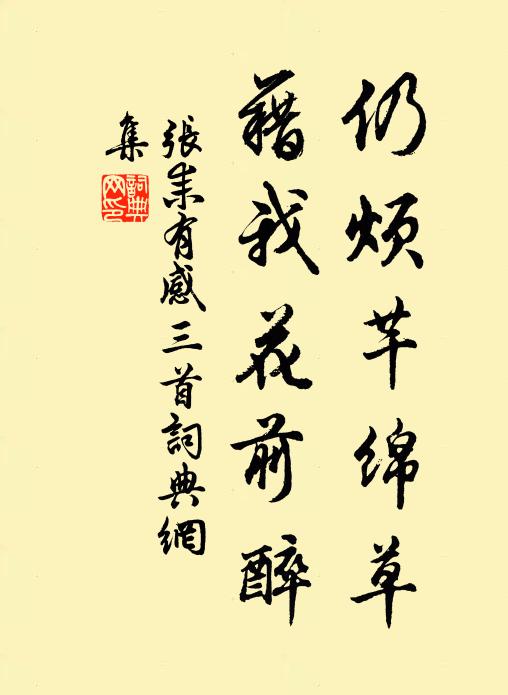 仍烦芊綿草
藉我花前醉
張耒有感三首詞典網
集
詞典网印